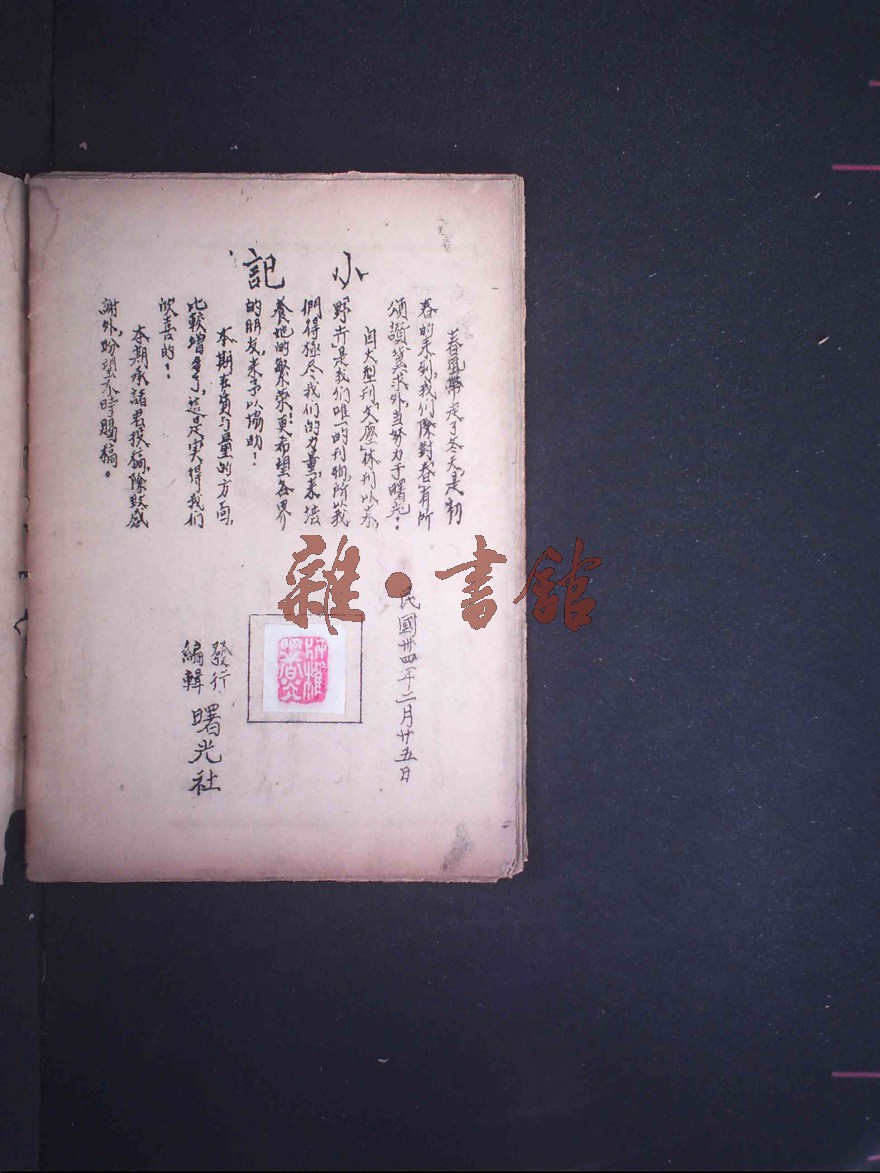 小記
春風帶走了冬天,是初
春的来到,我们除對春有所
頌讚冀求外,当努力于曙光!
自大型刊「文應」休刊以来,
野卉」是我们唯一的刊物,所以我
們得極尽我们的力量,来培
養她的繁荣!更希望各界
的朋友,来予以協助!
本期在質与量的方面,
比較增多了,這是実得我们
欣喜的!
本期承諸君投稿,除致感
謝外,盼望不時賜稿。
民國卅四年二月廿五日
發行
編輯
曙光社
雜·書館